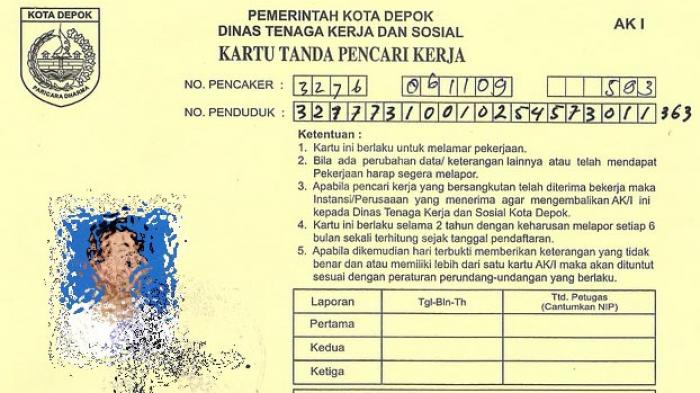 KOTA DEPOK
PARICARA DHARMA
PEMERINTAH KOTA DEPOK
DINAS TENAGA KERJA DAN SOSIAL
KARTU TANDA PENCARI KERJA
AK I
NO. PENCAKER : 3276 061109 583
NO. PENDUDUK :
Ketentuan :
1. Kartu ini berlaku untuk melamar pekerjaan.
2. Bila ada perubahan data/ keterangan lainnya atau telah mendapat
Pekerjaan harap segera melapor.
3. Apabila pencari kerja yang bersangkutan telah diterima bekerja maka
Instansi/Perusaaan yang menerima agar mengembalikan AK/I ini
kepada Dinas Tenaga Kerja dan Sosial Kota Depok.
4. Kartu ini berlaku selama 2 tahun dengan keharusan melapor setiap 6
bulan sekali terhitung sejak tanggal pendaftaran.
5. Apabila dikemudian hari terbukti memberikan keterangan yang tidak
benar dan atau memiliki lebih dari satu kartu AK/I maka akan dituntut
sesuai dengan peraturan perundang-undangan yang berlaku.
Laporan Tgl-Bln-Th Ttd. Petugas
(Cantumkan NIP)
Pertama
Kedua
Ketiga